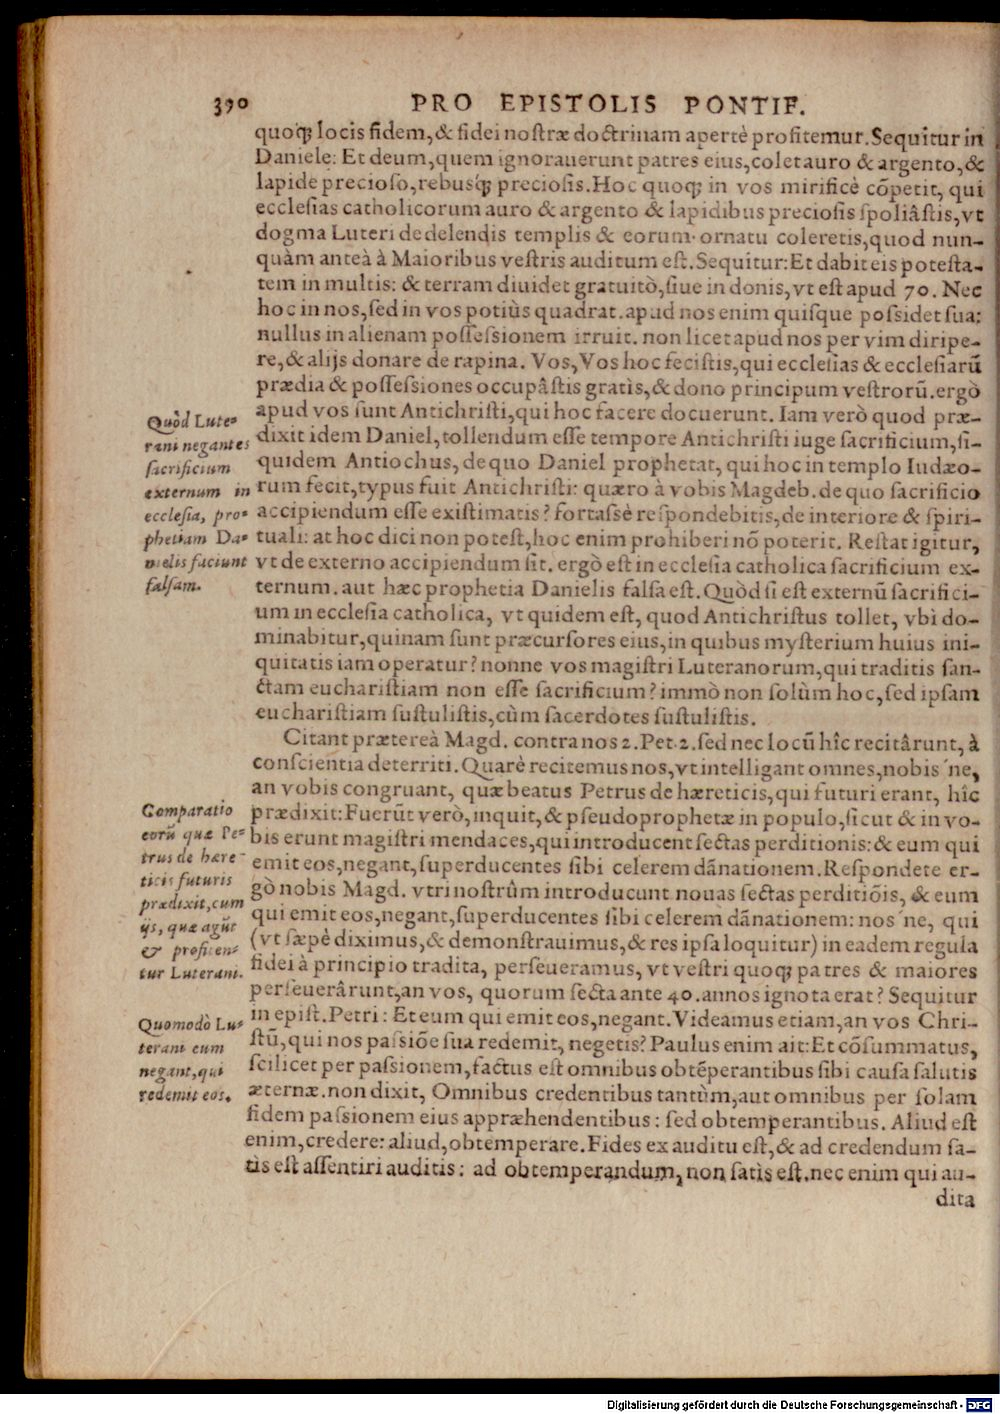 390 PRO EPISTOLIS PONTIF.
quoq; locis fidem, & fidei nostræ doctrinam apertè profitemur. Sequitur in
Daniele: Et deum, quem ignorauerunt patres eius, colet auro & argento, &
lapide precioso, rebusq; preciosis. Hoc quoq; in vos mirificè cõpetit, qui
ecclesias catholicorum auro & argento & lapidibus preciosis spoliâstis, vt
dogma Luteri de delendis templis & eorum ornatu coleretis, quod nun-
quàm anteà à Maioribus vestris auditum est. Sequitur: Et dabit eis potesta-
tem in multis: & terram diuidet gratuitò, siue in donis, vt est apud 70. Nec
hoc in nos, sed in vos potiùs quadrat. apud nos enim quisque possidet sua:
nullus in alienam possessionem irruit. non licet apud nos per vim diripe-
re, & alijs donare de rapina. Vos, Vos hoc fecistis, qui ecclesias & ecclesiarũ
prædia & possessiones occupâstis gratìs, & dono principum vestrorũ. ergò
apud vos sunt Antichristi, qui hoc facere docuerunt. Iam verò quod præ-
dixit idem Daniel, tollendum esse tempore Antichristi iuge sacrificium, si-
quidem Antiochus, de quo Daniel prophetat, qui hoc in templo Iudæo-
rum fecit, typus fuit Antichristi: quæro à vobis Magdeb. de quo sacrificio
accipiendum esse existimatis? fortassè respondebitis, de interiore & spiri-
tuali: at hoc dici non potest, hoc enim prohiberi nõ poterit. Restat igitur,
vt de externo accipiendum sit. ergò est in ecclesia catholica sacrificium ex-
ternum. aut hæc prophetia Danielis falsa est. Quòd si est externũ sacrifici-
um in ecclesia catholica, vt quidem est, quod Antichristus tollet, vbi do-
minabitur, quinam sunt præcursores eius, in quibus mysterium huius ini-
quitatis iam operatur? nonne vos magistri Luteranorum, qui traditis san-
ctam eucharistiam non esse sacrificium? immò non solùm hoc, sed ipsam
eucharistiam sustulistis, cùm sacerdotes sustulistis.
Quòd Lute-
rani negantes
sacrificium
externum in
ecclesia, pro-
phetiam Da-
nielis faciunt
falsam.
Citant prætereà Magd. contra nos 2. Pet. 2. sed nec locũ hîc recitârunt, à
conscientia deterriti. Quarè recitemus nos, vt intelligant omnes, nobis'ne,
an vobis congruant, quæ beatus Petrus de hæreticis, qui futuri erant, hîc
prædixit: Fuerũt verò, inquit, & pseudoprophetæ in populo, sicut & in vo-
bis erunt magistri mendaces, qui introducent sectas perditionis: & eum qui
emit eos, negant, superducentes sibi celerem dãnationem. Respondete er-
gò nobis Magd. vtri nostrûm introducunt nouas sectas perditiõis, & eum
qui emit eos, negant, superducentes sibi celerem dãnationem: nos'ne, qui
(vt sæpè diximus, & demonstrauimus, & res ipsa loquitur) in eadem regula
fidei à principio tradita, perseueramus, vt vestri quoq; patres & maiores
perseuerârunt, an vos, quorum secta ante 40. annos ignota erat? Sequitur
in epist. Petri: Et eum qui emit eos, negant. Videamus etiam, an vos Chri-
stũ, qui nos passiõe sua redemit, negetis? Paulus enim ait: Et cõsummatus,
scilicet per passionem, factus est omnibus obtẽperantibus sibi causa salutis
æternæ. non dixit, Omnibus credentibus tantùm, aut omnibus per solam
fidem passionem eius appræhendentibus: sed obtemperantibus. Aliud est
enim, credere: aliud, obtemperare. Fides ex auditu est, & ad credendum sa-
tis est assentiri auditis: ad obtemperandum, non satis est. nec enim qui au-
dita
Comparatio
eorũ quæ Pe-
trus de hære-
ticis futuris
prædixit, cum
ijs, quæ agũt
& profiten-
tur Luterani.
Quomodò Lu-
terani eum
negant, qui
redemit eos.
Digitalisierung gefördert durch die Deutsche Forschungsgemeinschaft - DFG